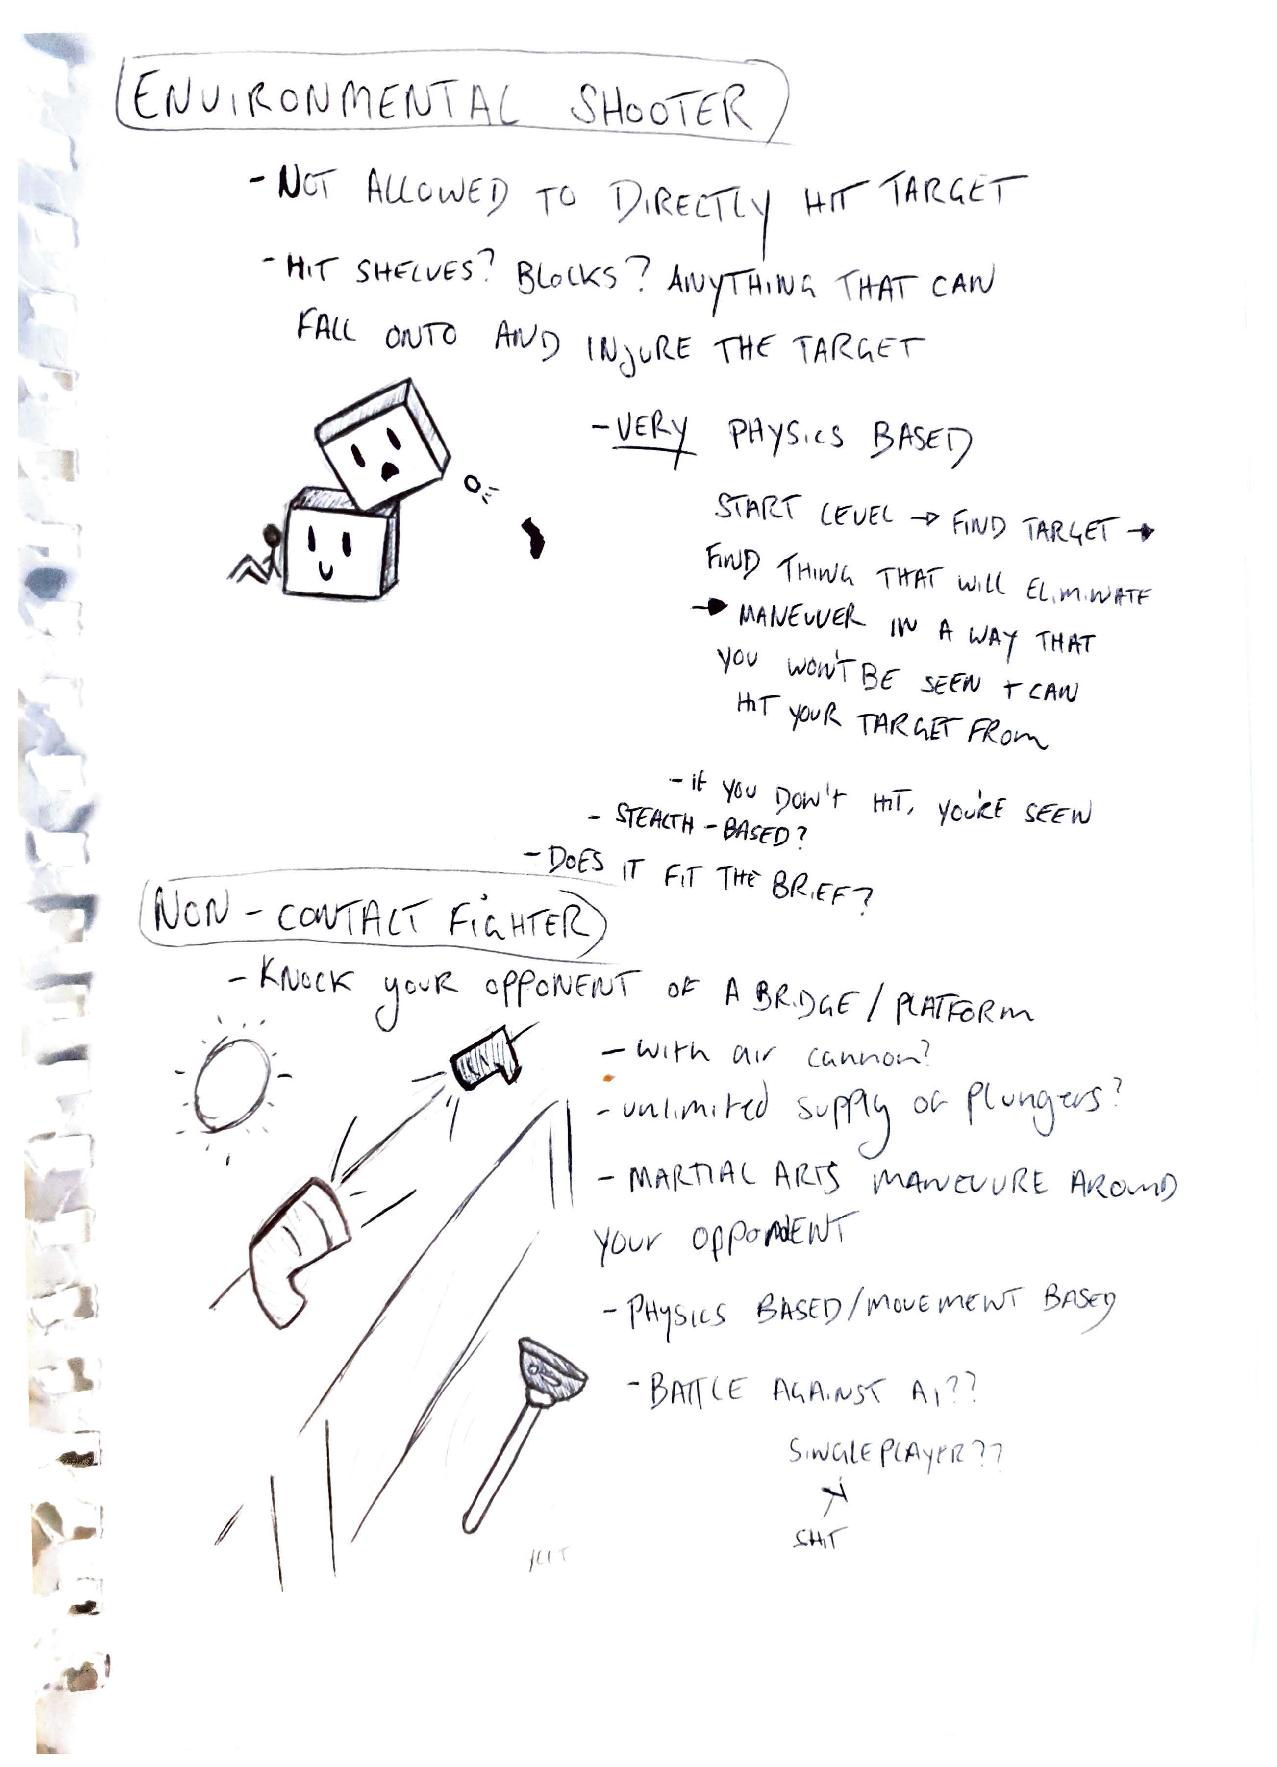 ENVIRONMENTAL SHOOTER
- NOT ALLOWED TO DIRECTLY HIT TARGET
- HIT SHELVES? BLOCKS? ANYTHING THAT CAN
FALL ONTO AND INJURE THE TARGET
- VERY PHYSICS BASED
START LEVEL → FIND TARGET →
FIND THING THAT WILL ELIMINATE
→ MANEUVER IN A WAY THAT
YOU WON'T BE SEEN + CAN
HIT YOUR TARGET FROM
- if YOU DON'T HIT, YOU'RE SEEN
- STEALTH - BASED?
- DOES IT FIT THE BRIEF?
NON - CONTACT FIGHTER
- KNOCK YOUR OPPONENT OF A BRIDGE / PLATFORM
- with air cannon?
- unlimited supply of plungers?
- MARTIAL ARTS MANEUVURE AROUND
YOUR OPPONENT
- PHYSICS BASED/MOVEMENT BASED
- BATTLE AGAINST AI??
SINGLEPLAYER??
SHIT